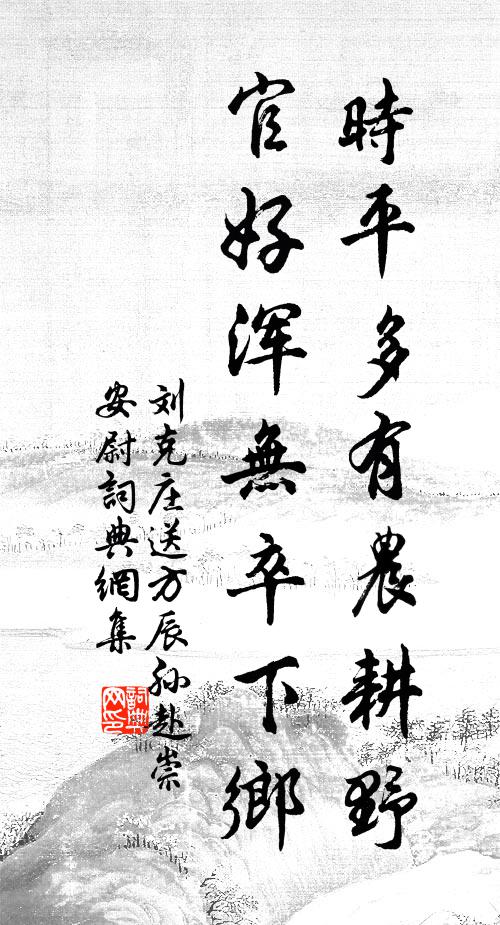 時平多有農耕野
官好渾無卒下鄉
刘克庄送方辰孙赴崇
安尉詞典網集
詞典
网印